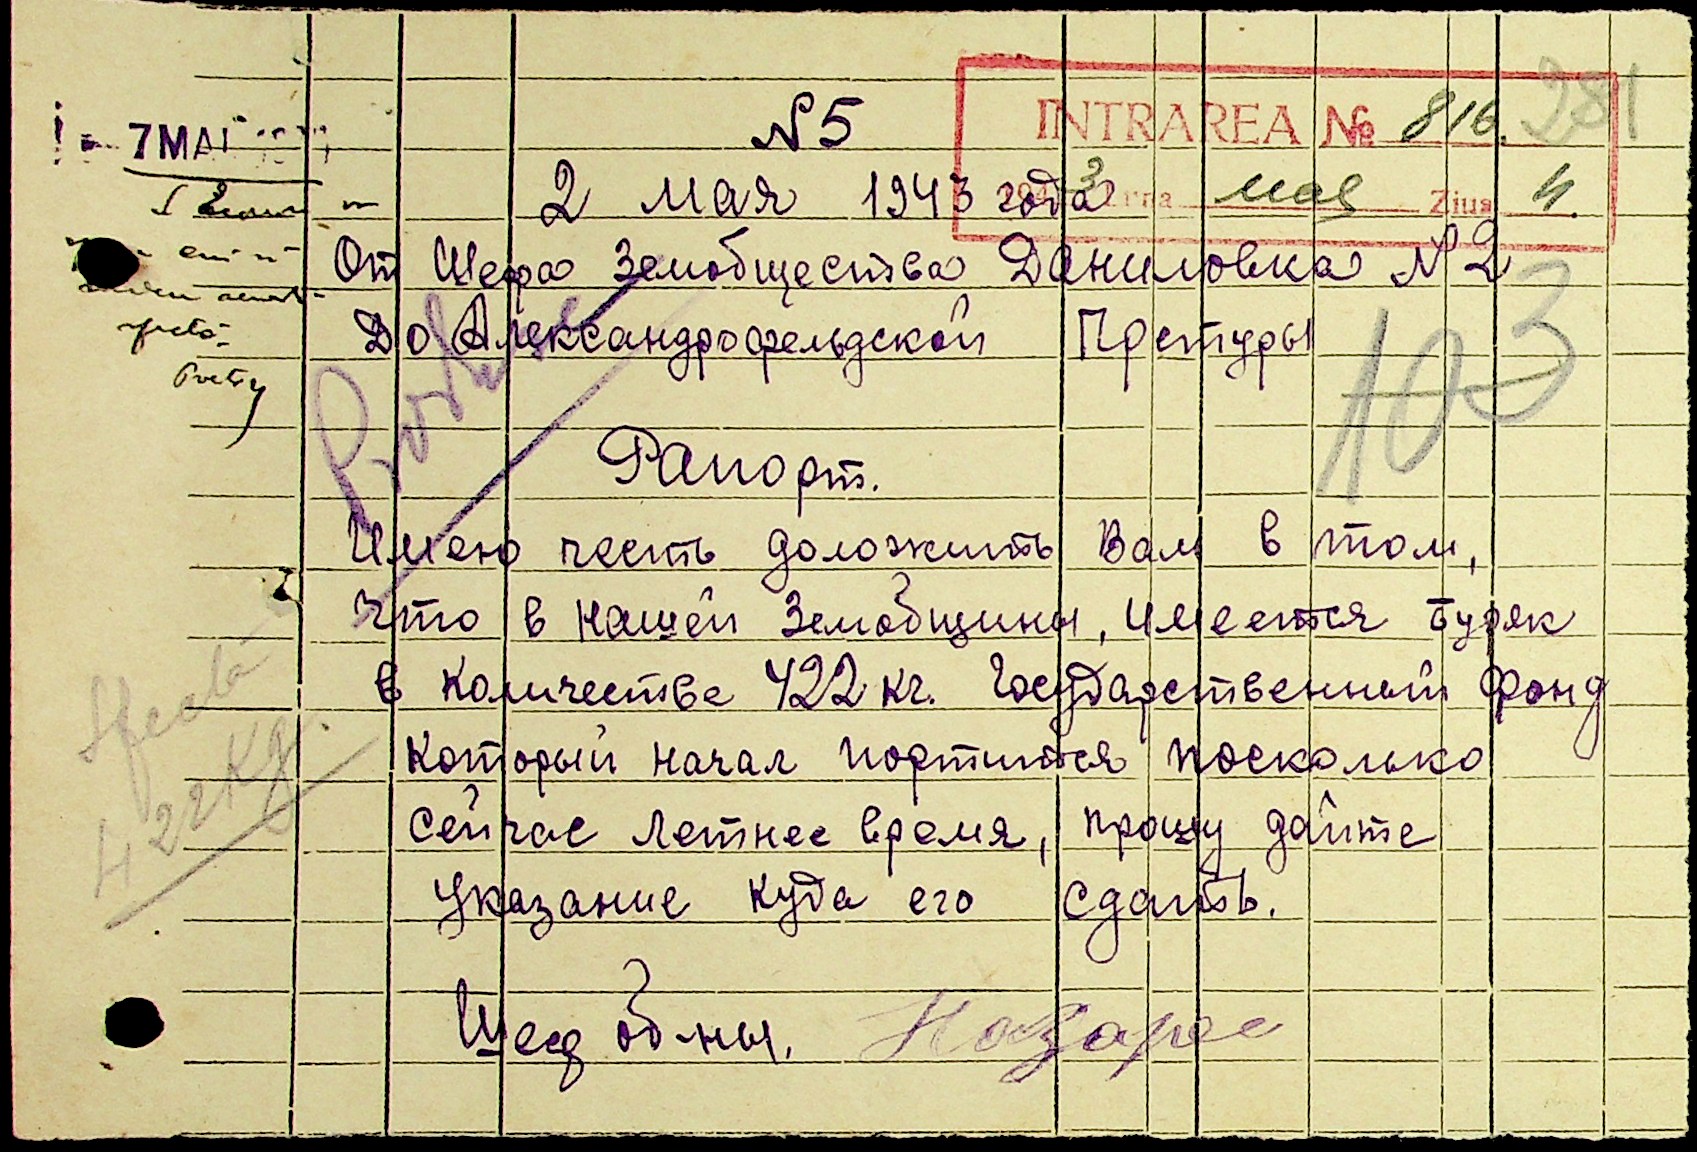 281
INTRAREA № 816.
1943 Luna мая Ziua 4.
7 MAI
№5
2 мая 1943 года
От Шефа Земобщества Даниловка №2
До Александрофельдской Претуры
103
Рапорт.
Имею честь доложить Вам в том,
что в нашей Земобщины, имеется буряк
в количестве 422 кг. Государственный фонд
который начал портится посколько
сейчас летнее время, прошу дайте
указание куда его сдать.
Sfeclă
422 Kg.
Шеф об-ны. Назаре